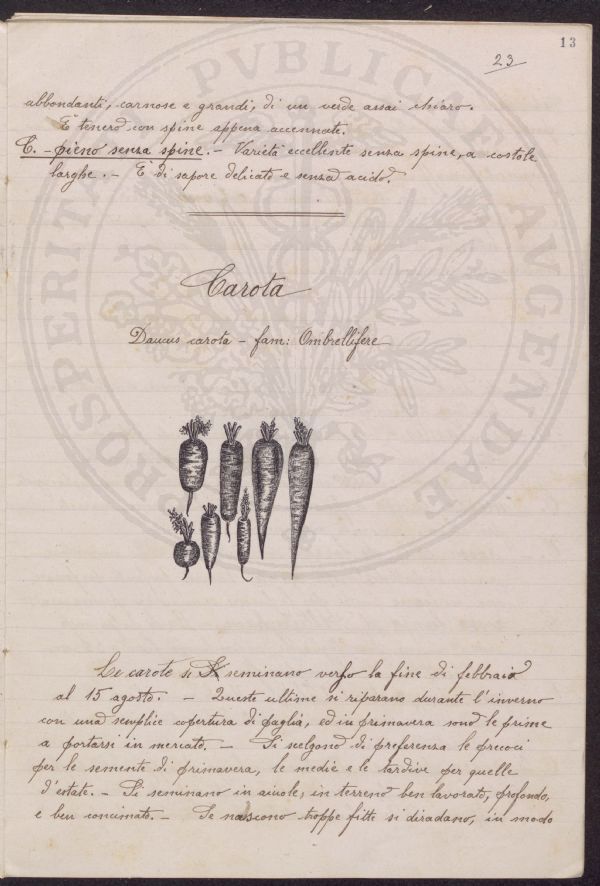 13
23
abbondanti, carnose e grandi, di un verde assai chiaro.
È tenero con spine appena accennate.
C. - pieno senza spine. - Varietà eccellente senza spine, a costole
larghe. - È di sapore delicato e senza acido.
Carota
Daucus carota - fam: Ombrellifere
Le carote si seminano verso la fine di febbraio
al 15 agosto. - Queste ultime si riparano durante l'inverno
con una semplice copertura di paglia, ed in primavera sono le prime
a portarsi in mercato. - Si scelgono di preferenza le precoci
per le semente di primavera, le medie e le tardive per quelle
d'estate. - Si seminano in aiuole, in terreno ben lavorato, profondo,
e ben concimato. - Se nascono troppe fitte si diradano, in modo
PUBLICAE
PROSPERITATI
AUGENDAE